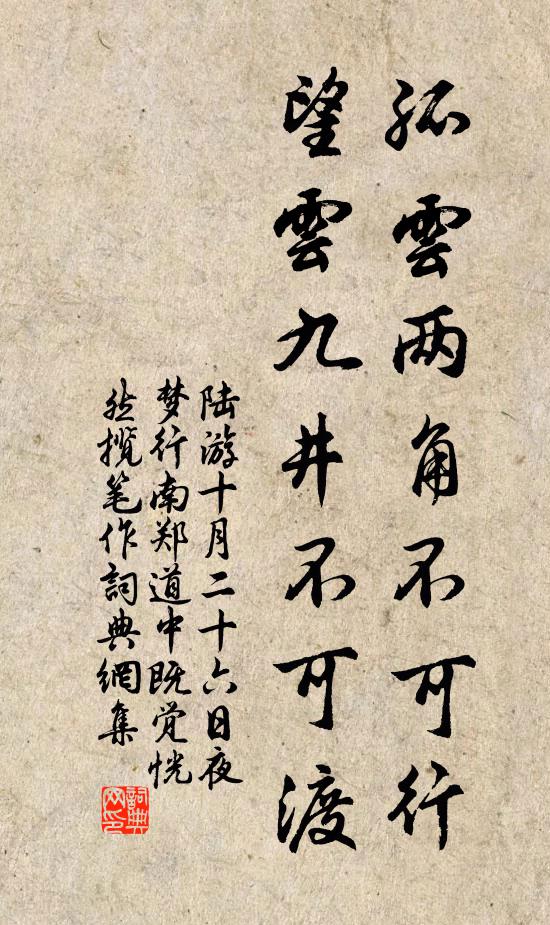 孤雲两角不可行
望雲九井不可渡
陆游十月二十六日夜
梦行南郑道中既觉恍
然揽笔作詞典網集
詞典
网印